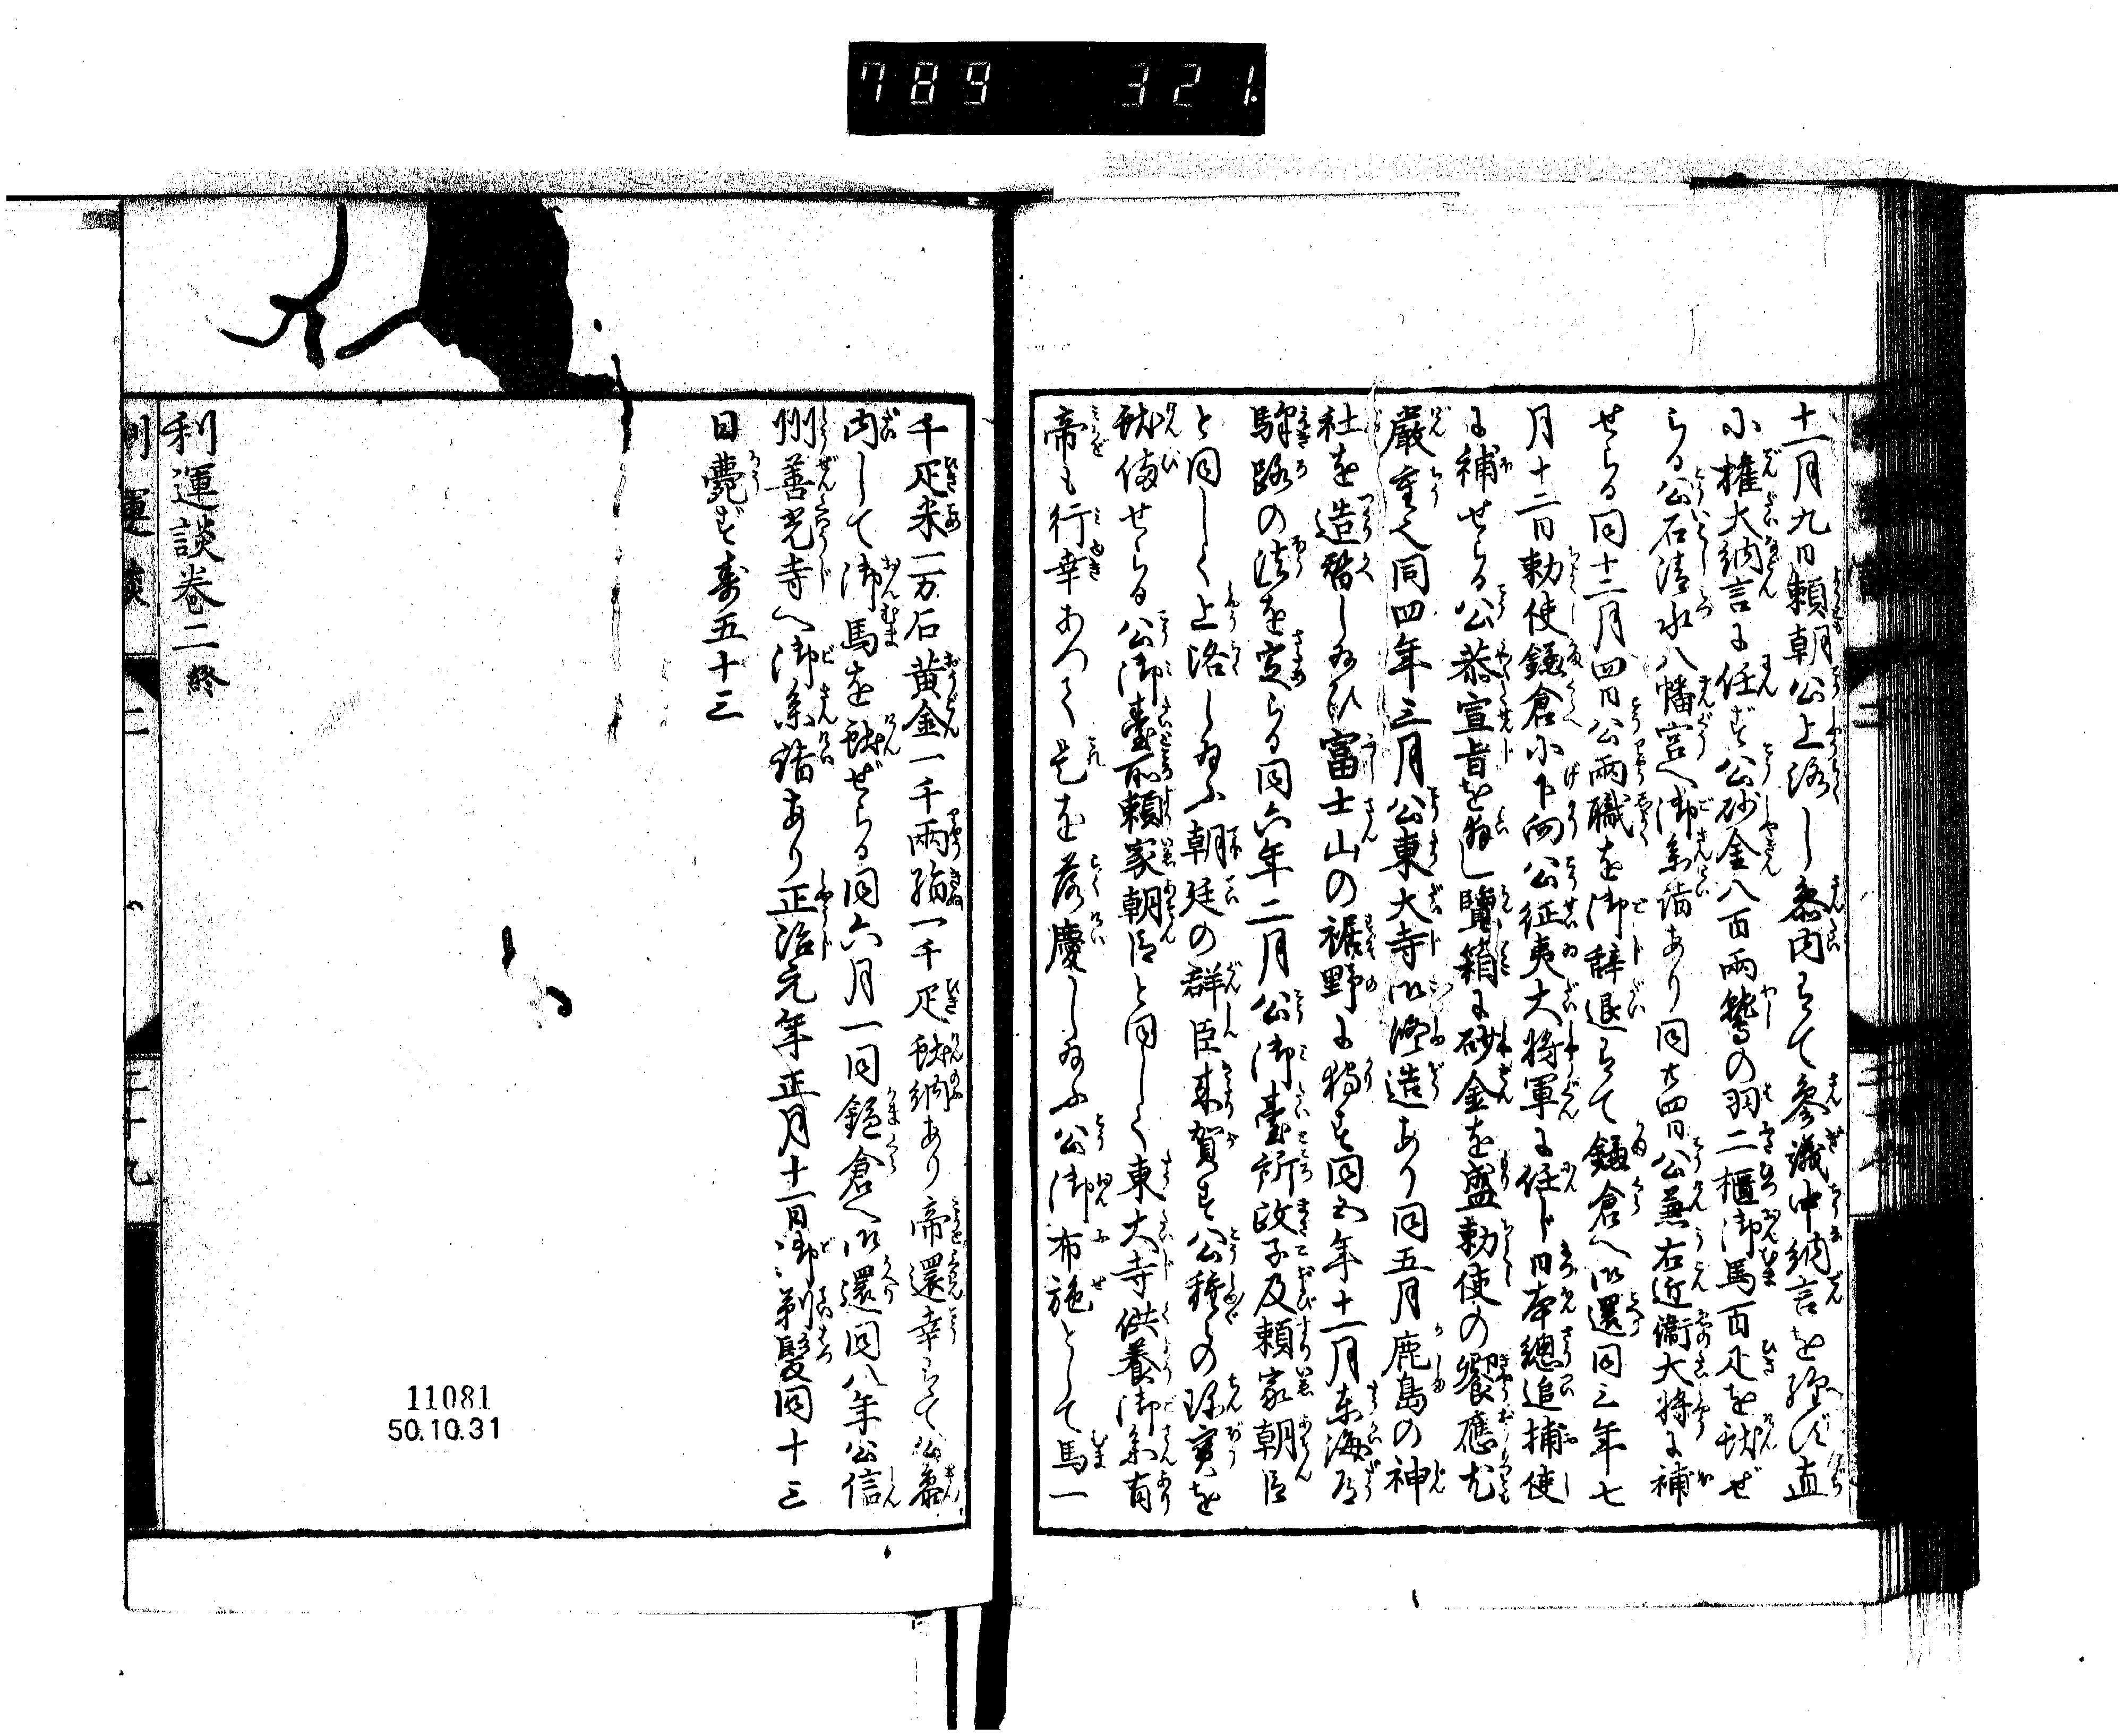 789 321.
十一月九日頼朝公上洛し参内有て参議中納言を経ず直
に権大納言に任ず公砂金八百両鷲の羽二櫃御馬百疋を献ぜ
らる公石清水八幡宮へ御参詣あり同廿四日公兼右近衛大将に補
せらる同十二月四日公両職を御辞退有て鎌倉へ御還同三年七
月十二日勅使鎌倉に下向公征夷大将軍に任じ日本総追捕使
に補せらる公恭宣旨を拝し覧箱に砂金を盛勅使の饗応尤
厳重也同四年三月公東大寺御修造あり同五月鹿島の神
社を造替し給ひ富士山の裾野に狩す同五年十一月東海道
駅路の法を定らる同六年二月公御臺所政子及頼家朝臣
と同しく上洛し給ふ朝廷の群臣来賀す公種々の珍宝を
献備せらる公御臺所頼家朝臣と同しく東大寺供養御参有
帝も行幸あつて是を落慶し給ふ公御布施として馬一
千疋米一万石黄金一千両絹一千疋献納あり帝還幸有て公参
内して御馬を献ぜらる同六月一同鎌倉へ御還同八年公信
州善光寺へ御参詣あり正治元年正月十一日御剃髪同十三
日薨ず寿五十三
利運談巻二終
利運談 二 二十九
11081
50.10.31